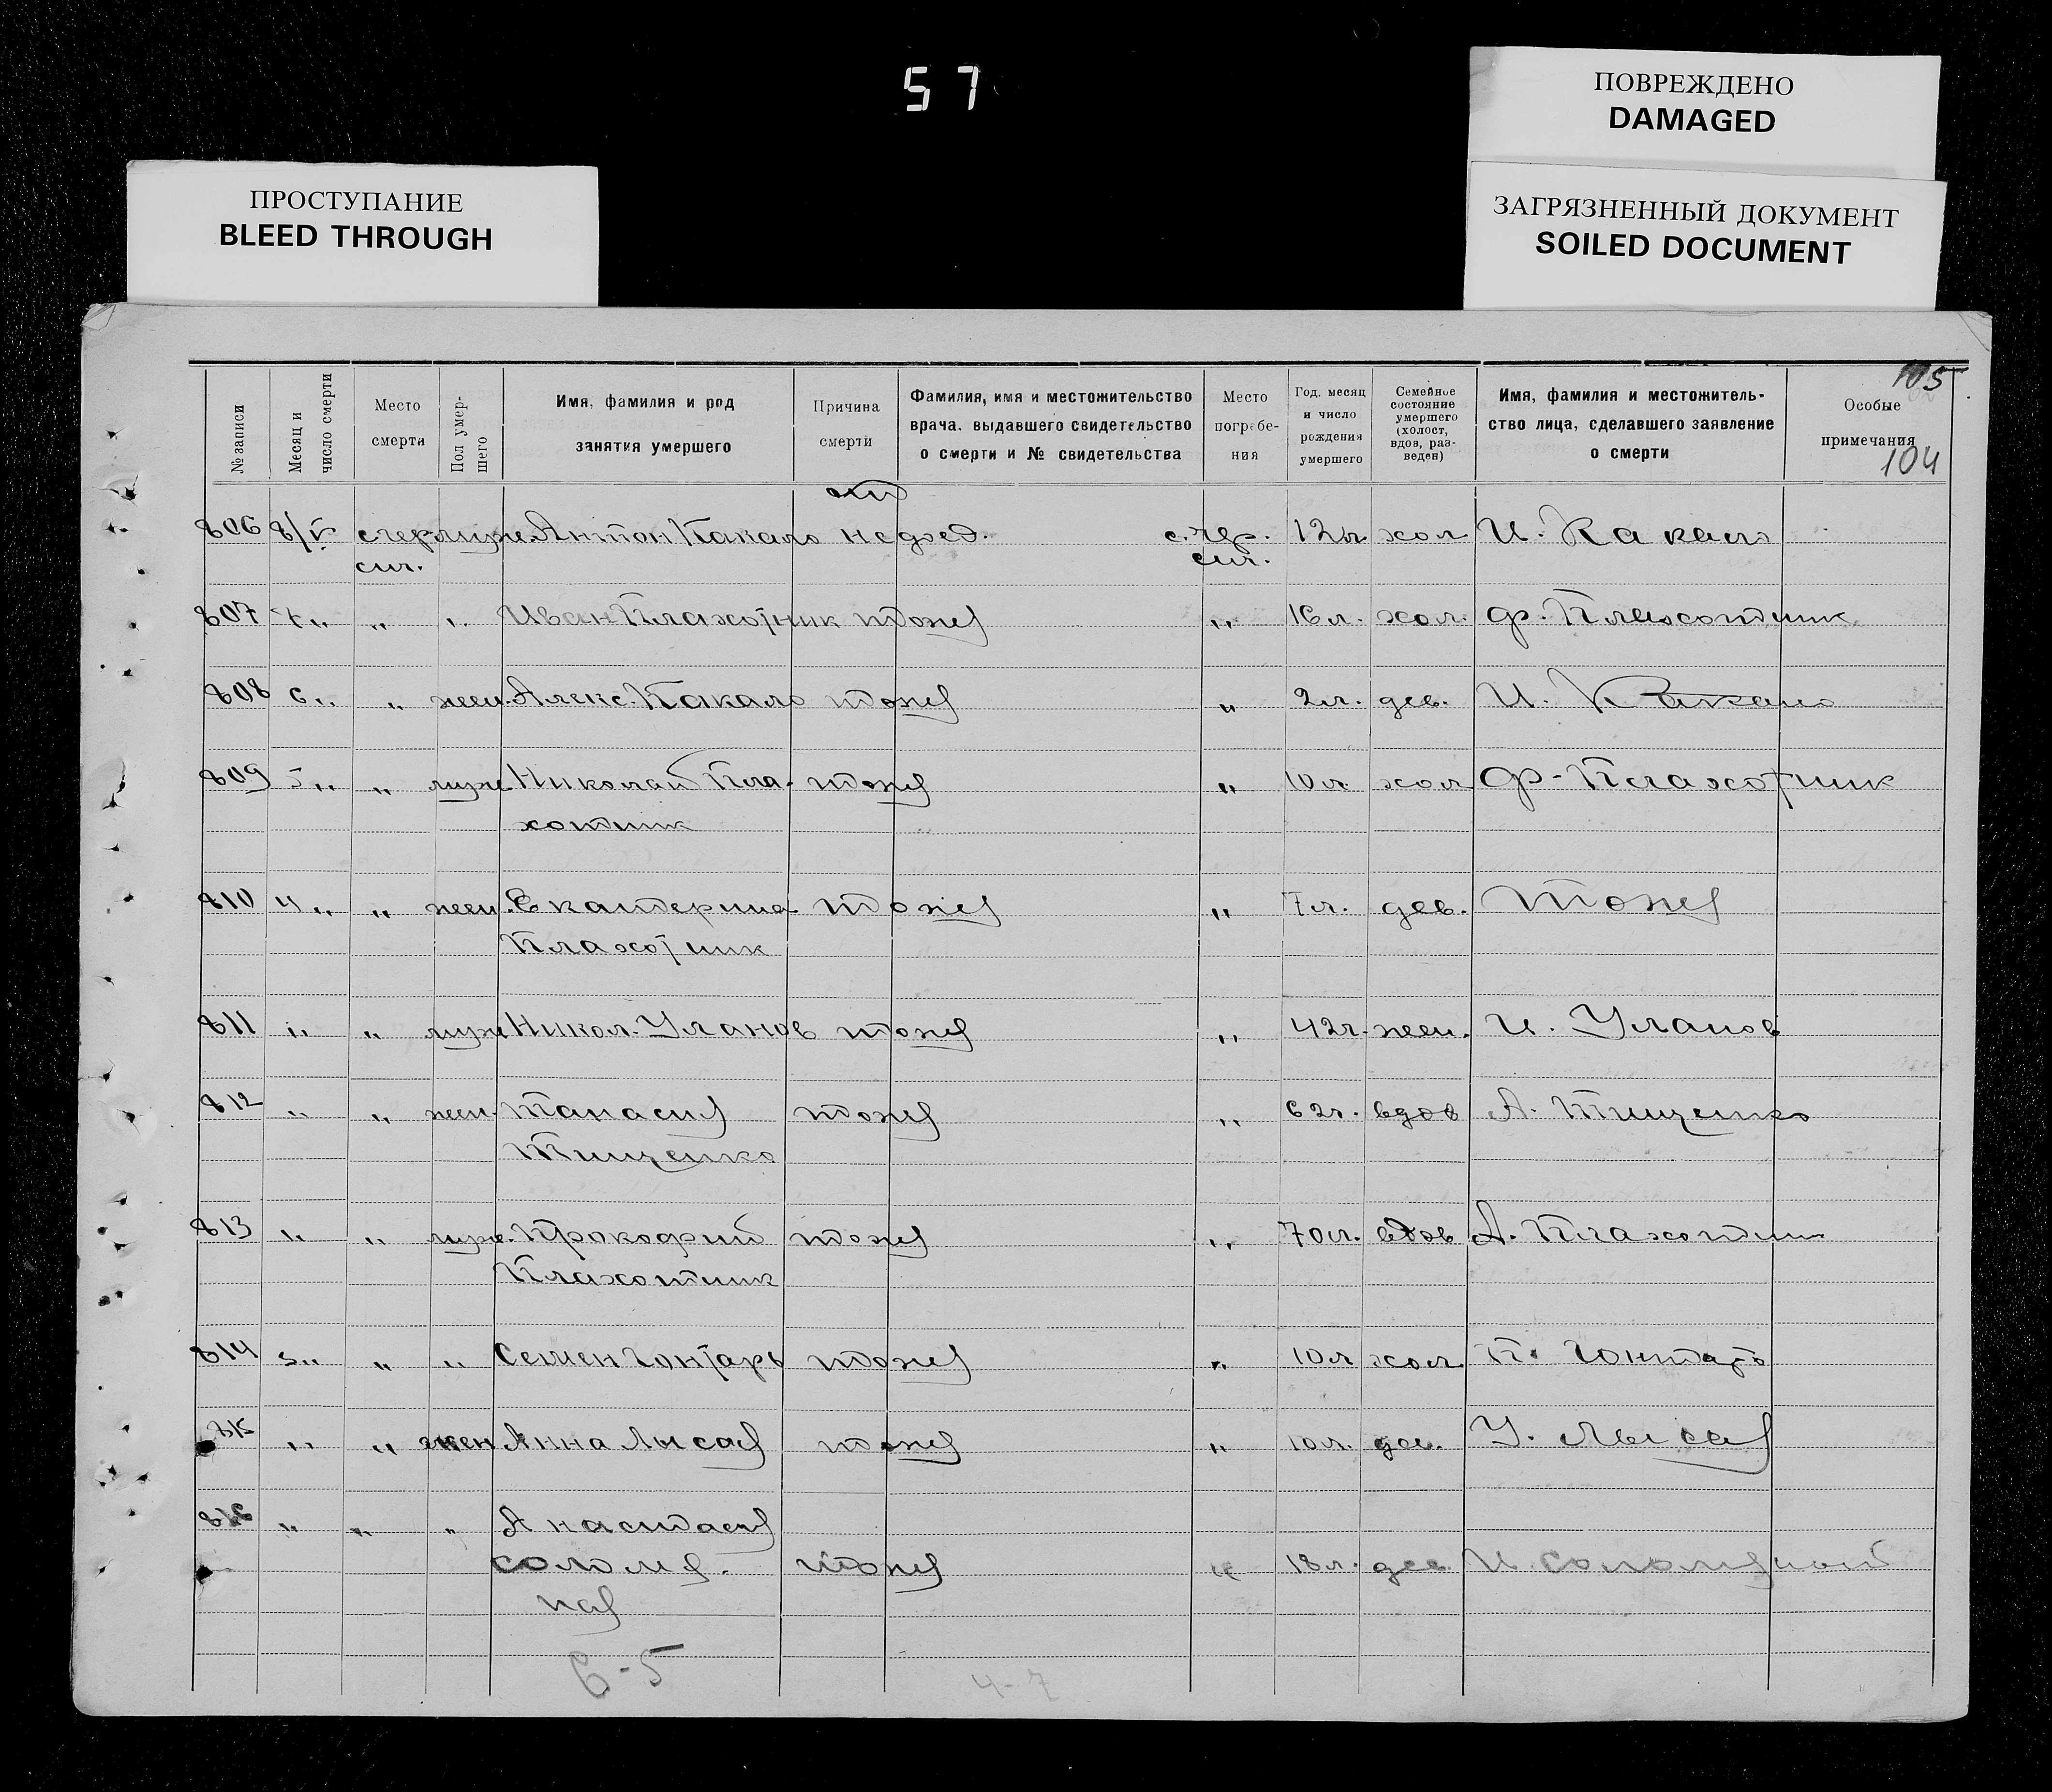 57
ПОВРЕЖДЕНО
DAMAGED
ПРОСТУПАНИЕ
BLEED THROUGH
ЗАГРЯЗНЕННЫЙ ДОКУМЕНТ
SOILED DOCUMENT
105
№ записи
Месяц и число смерти
Место смерти
Пол умер-шего
Имя, фамилия и род занятия умершего
Причина смерти
Фамилия, имя и местожительство врача. выдавшего свидетельство о смерти и № свидетельства
Место погребе-ния
Год. месяц и число рождения умершего
Семейное состояние умершего (холост, вдов, раз-веден)
Имя, фамилия и местожитель-ство лица, сделавшего заявление о смерти
Особые примечания
104
от
806 8/V с чер муж. Антон Какало недоед. с. чер. 12л хол И. Какало
сил. сил.
807 7 „ „ „ Иван Плахотник тоже „ 16л. хол. Ф. Плахотник
808 6 „ „ жен. Алекс. Какало тоже „ 2л. дев. И. Какало
809 5 „ „ муж Николай Пла- тоже „ 10л. хол Ф. Плахотник
хотник
810 4 „ „ жен. Екатерина тоже „ 7л. дев. тоже
Плахотник
811 „ „ муж Никол. Уланов тоже „ 42г. жен. И. Уланов
812 „ „ жен. Танасия тоже „ 62г. вдов А. Тищенко
Тищенко
813 „ „ муж. Прокофий тоже „ 70л. вдов А. Плахотник
Плахотник
814 5 „ „ „ Семен Гонтарь тоже „ 10л хол П. Гонтарь
815 „ „ жен Анна Лысая тоже „ 10л. дев. У. Лысая
816 „ „ „ Анастасия
соломя- тоже „ 18л. дев. И. Соломяной
ная
6-5 4-7